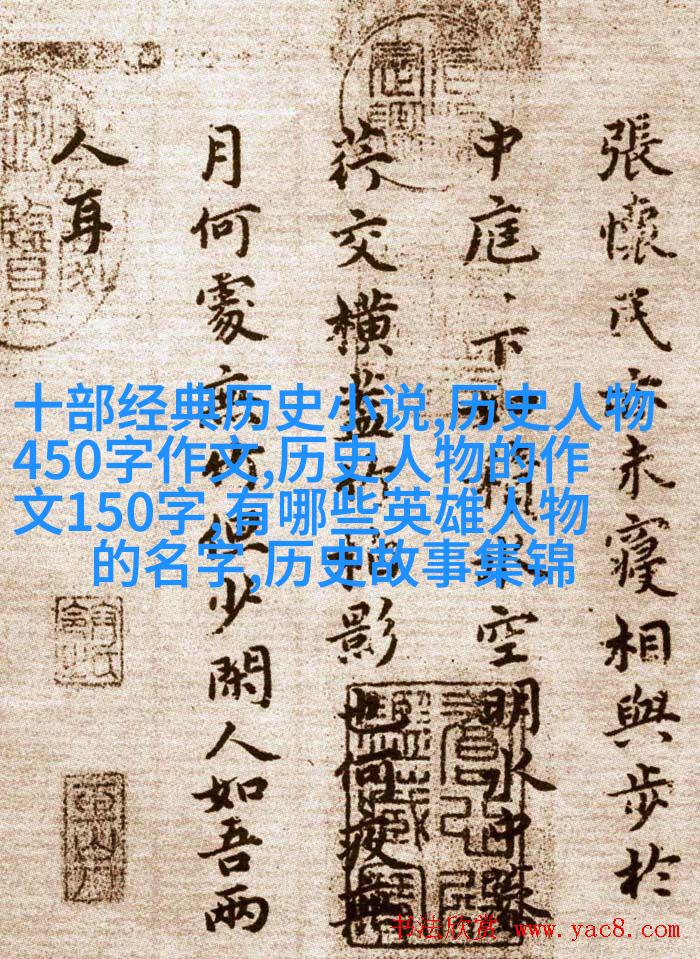 張懷民亦未寢相與步於
中庭、下如積水空明水中藻
荇交橫蓋竹柏影也何夜無
月何處無竹但少閑人如吾兩
人耳
十部经典历史小说,历史人物
450字作文,历史人物的作
文150字,有哪些英雄人物
的名字,历史故事集锦
书法欣赏 www.yac8.com